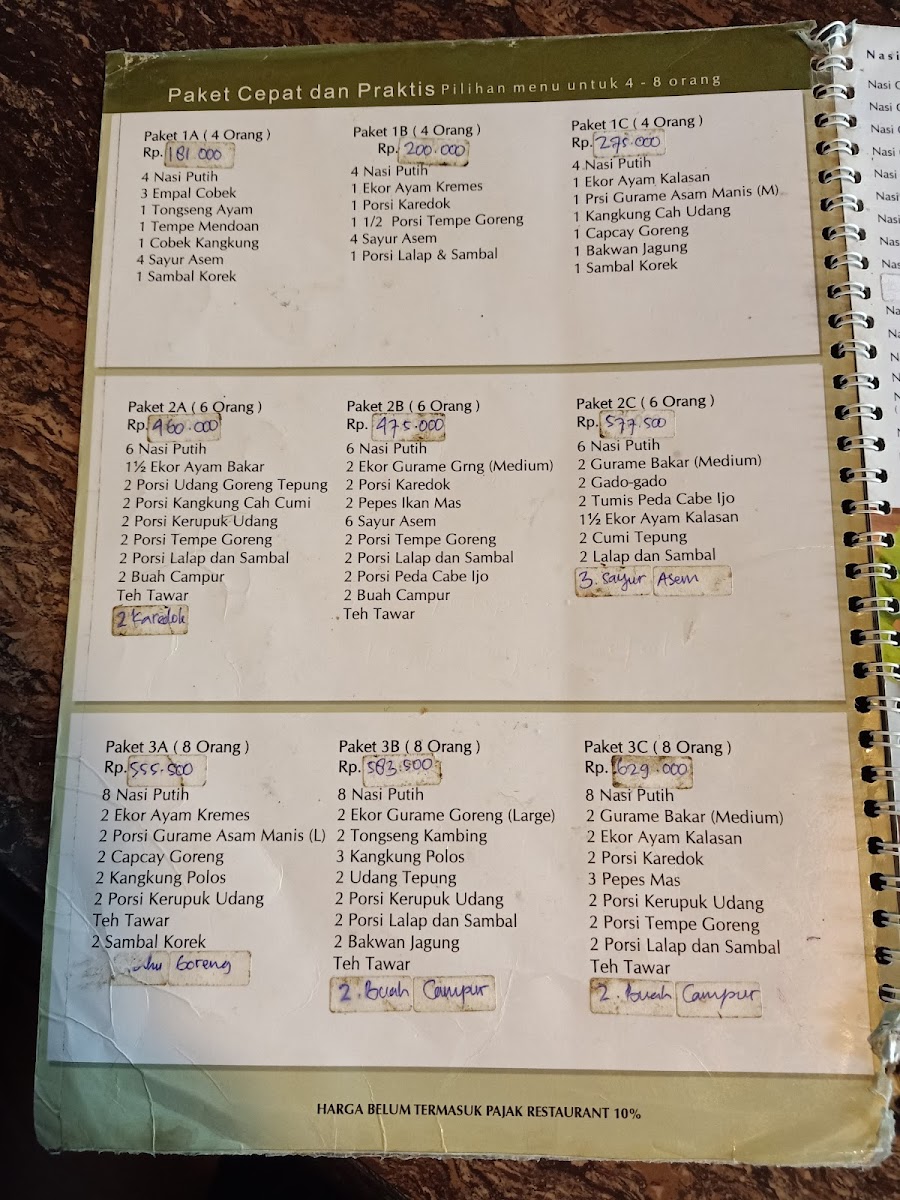 Paket Cepat dan Praktis Pilihan menu untuk 4 - 8 orang
Paket 1A ( 4 Orang )
Rp. 181.000
4 Nasi Putih
3 Empal Cobek
1 Tongseng Ayam
1 Tempe Mendoan
1 Cobek Kangkung
4 Sayur Asem
1 Sambal Korek
Paket 1B ( 4 Orang )
Rp. 200.000
4 Nasi Putih
1 Ekor Ayam Kremes
1 Porsi Karedok
1 1/2 Porsi Tempe Goreng
4 Sayur Asem
1 Porsi Lalap & Sambal
Paket 1C ( 4 Orang )
Rp. 275.000
4 Nasi Putih
1 Ekor Ayam Kalasan
1 Prsi Gurame Asam Manis (M)
1 Kangkung Cah Udang
1 Capcay Goreng
1 Bakwan Jagung
1 Sambal Korek
Paket 2A ( 6 Orang )
Rp. 460.000
6 Nasi Putih
1½ Ekor Ayam Bakar
2 Porsi Udang Goreng Tepung
2 Porsi Kangkung Cah Cumi
2 Porsi Kerupuk Udang
2 Porsi Tempe Goreng
2 Porsi Lalap dan Sambal
2 Buah Campur
Teh Tawar
2 Karedok
Paket 2B ( 6 Orang )
Rp. 475.000
6 Nasi Putih
2 Ekor Gurame Grng (Medium)
2 Porsi Karedok
2 Pepes Ikan Mas
6 Sayur Asem
2 Porsi Tempe Goreng
2 Porsi Lalap dan Sambal
2 Porsi Peda Cabe Ijo
2 Buah Campur
Teh Tawar
Paket 2C ( 6 Orang )
Rp. 577.500
6 Nasi Putih
2 Gurame Bakar (Medium)
2 Gado-gado
2 Tumis Peda Cabe Ijo
1½ Ekor Ayam Kalasan
2 Cumi Tepung
2 Lalap dan Sambal
3. Sayur Asem
Paket 3A ( 8 Orang )
Rp. 555.500
8 Nasi Putih
2 Ekor Ayam Kremes
2 Porsi Gurame Asam Manis (L)
2 Capcay Goreng
2 Kangkung Polos
2 Porsi Kerupuk Udang
Teh Tawar
2 Sambal Korek
Goreng
Paket 3B ( 8 Orang )
Rp. 583.500
8 Nasi Putih
2 Ekor Gurame Goreng (Large)
2 Tongseng Kambing
3 Kangkung Polos
2 Udang Tepung
2 Porsi Kerupuk Udang
2 Porsi Lalap dan Sambal
2 Bakwan Jagung
Teh Tawar
2. Buah Campur
Paket 3C ( 8 Orang )
Rp. 629.000
8 Nasi Putih
2 Gurame Bakar (Medium)
2 Ekor Ayam Kalasan
2 Porsi Karedok
3 Pepes Mas
2 Porsi Kerupuk Udang
2 Porsi Tempe Goreng
2 Porsi Lalap dan Sambal
Teh Tawar
2. Buah Campur
HARGA BELUM TERMASUK PAJAK RESTAURANT 10%
Nasi
Nasi
Nasi
Nasi
Nasi
Nasi
Nasi